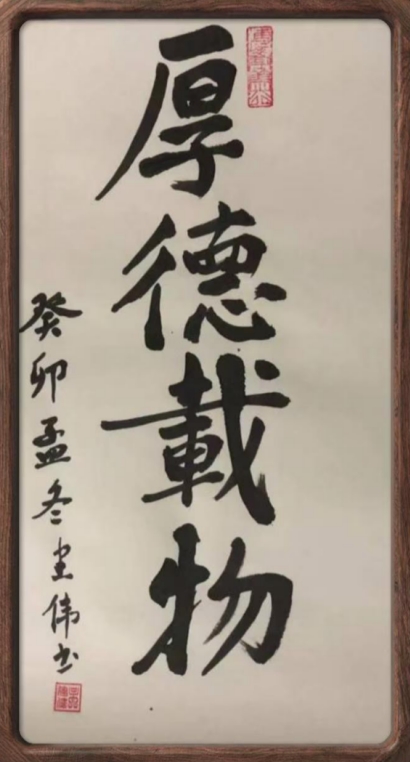 厚德載物
癸卯孟冬 伟书